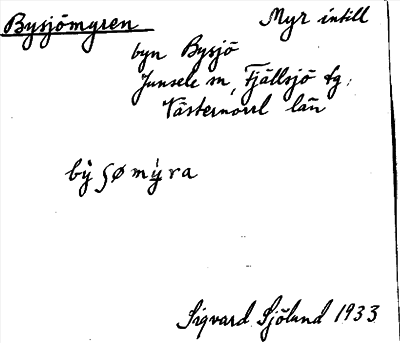 Bysjömyren Myr intill
byn Bysjö
Junsele sn, Fjällsjö tg.
Västernorrl län
by̆ ʂø mýra
Sigvard Sjölund 1933